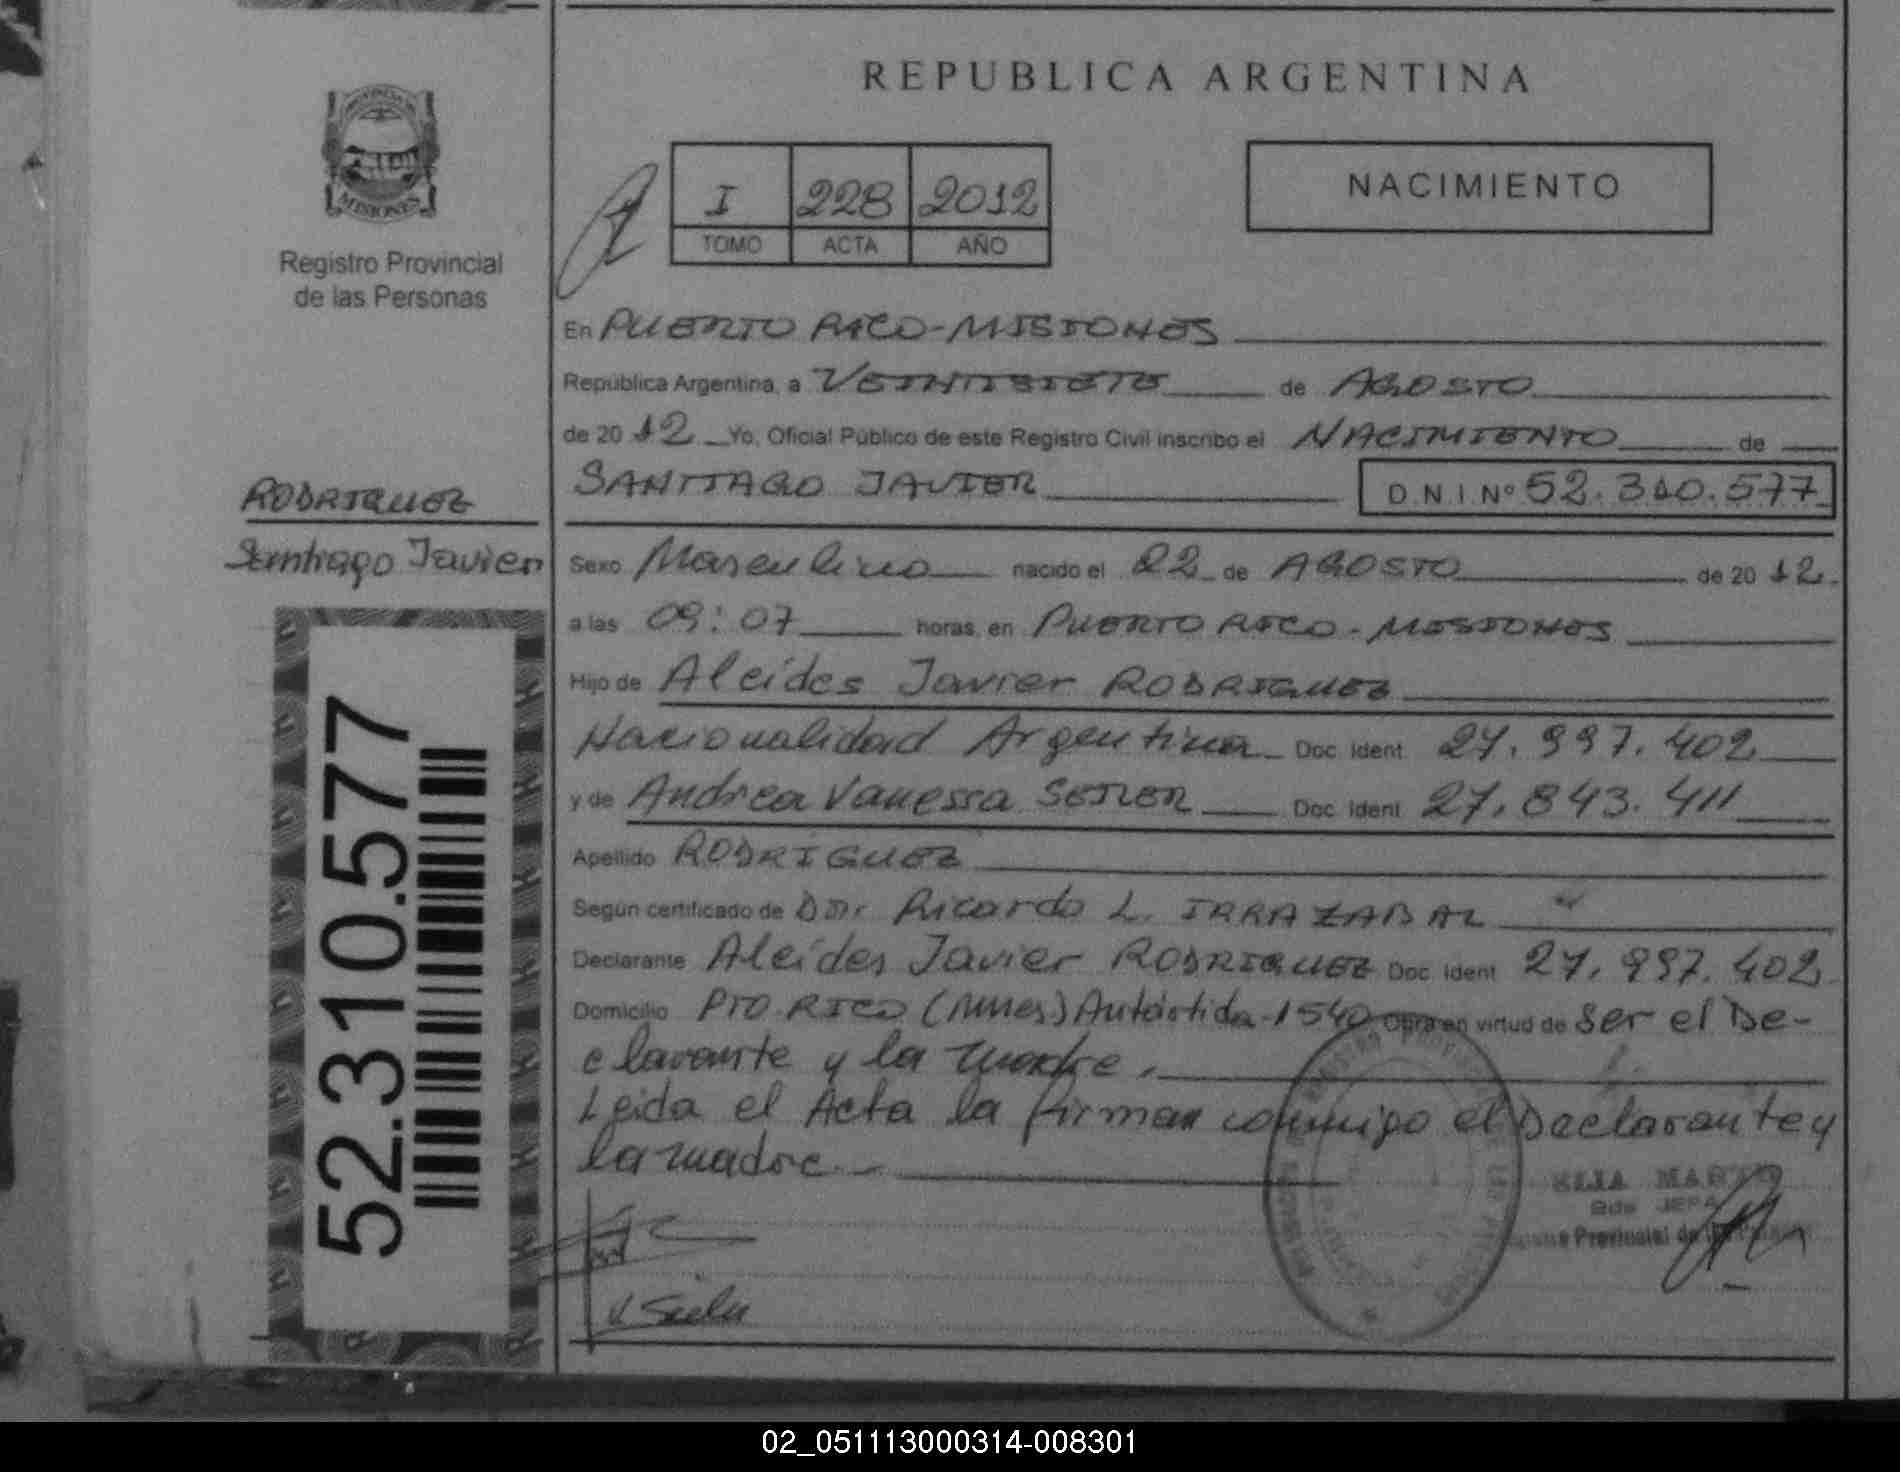 REPUBLICA ARGENTINA
PROVINCIA DE
MISIONES
Registro Provincial
de las Personas
I 228 2012
TOMO ACTA AÑO
NACIMIENTO
En PUERTO RICO-MISIONES
República Argentina, a VEINTISIETE de AGOSTO
de 2012 Yo, Oficial Público de este Registro Civil inscribo el NACIMIENTO de
SANTIAGO JAVIER D.N.I. Nº 52.310.577
RODRIGUEZ
Santiago Javier
Sexo Masculino nacido el 22 de AGOSTO de 2012.
a las 09:07 horas, en PUERTO RICO-MISIONES
Hijo de Alcides Javier RODRIGUEZ
Nacionalidad Argentina Doc. Ident. 27.997.402
y de Andrea Vanessa SEILER Doc. Ident. 27.843.411
Apellido RODRIGUEZ
Según certificado de Dr. Ricardo L. IRRAZABAL
Declarante Alcides Javier RODRIGUEZ Doc. Ident. 27.997.402
Domicilio PTO. RICO (Mnes) Antártida-1540 Obra en virtud de Ser el De-
clarante y la madre.
Leida el Acta la firman conmigo el Declarante y
la madre.
52.310.577
V Seiler
ELIA
Provincial de
02_051113000314-008301